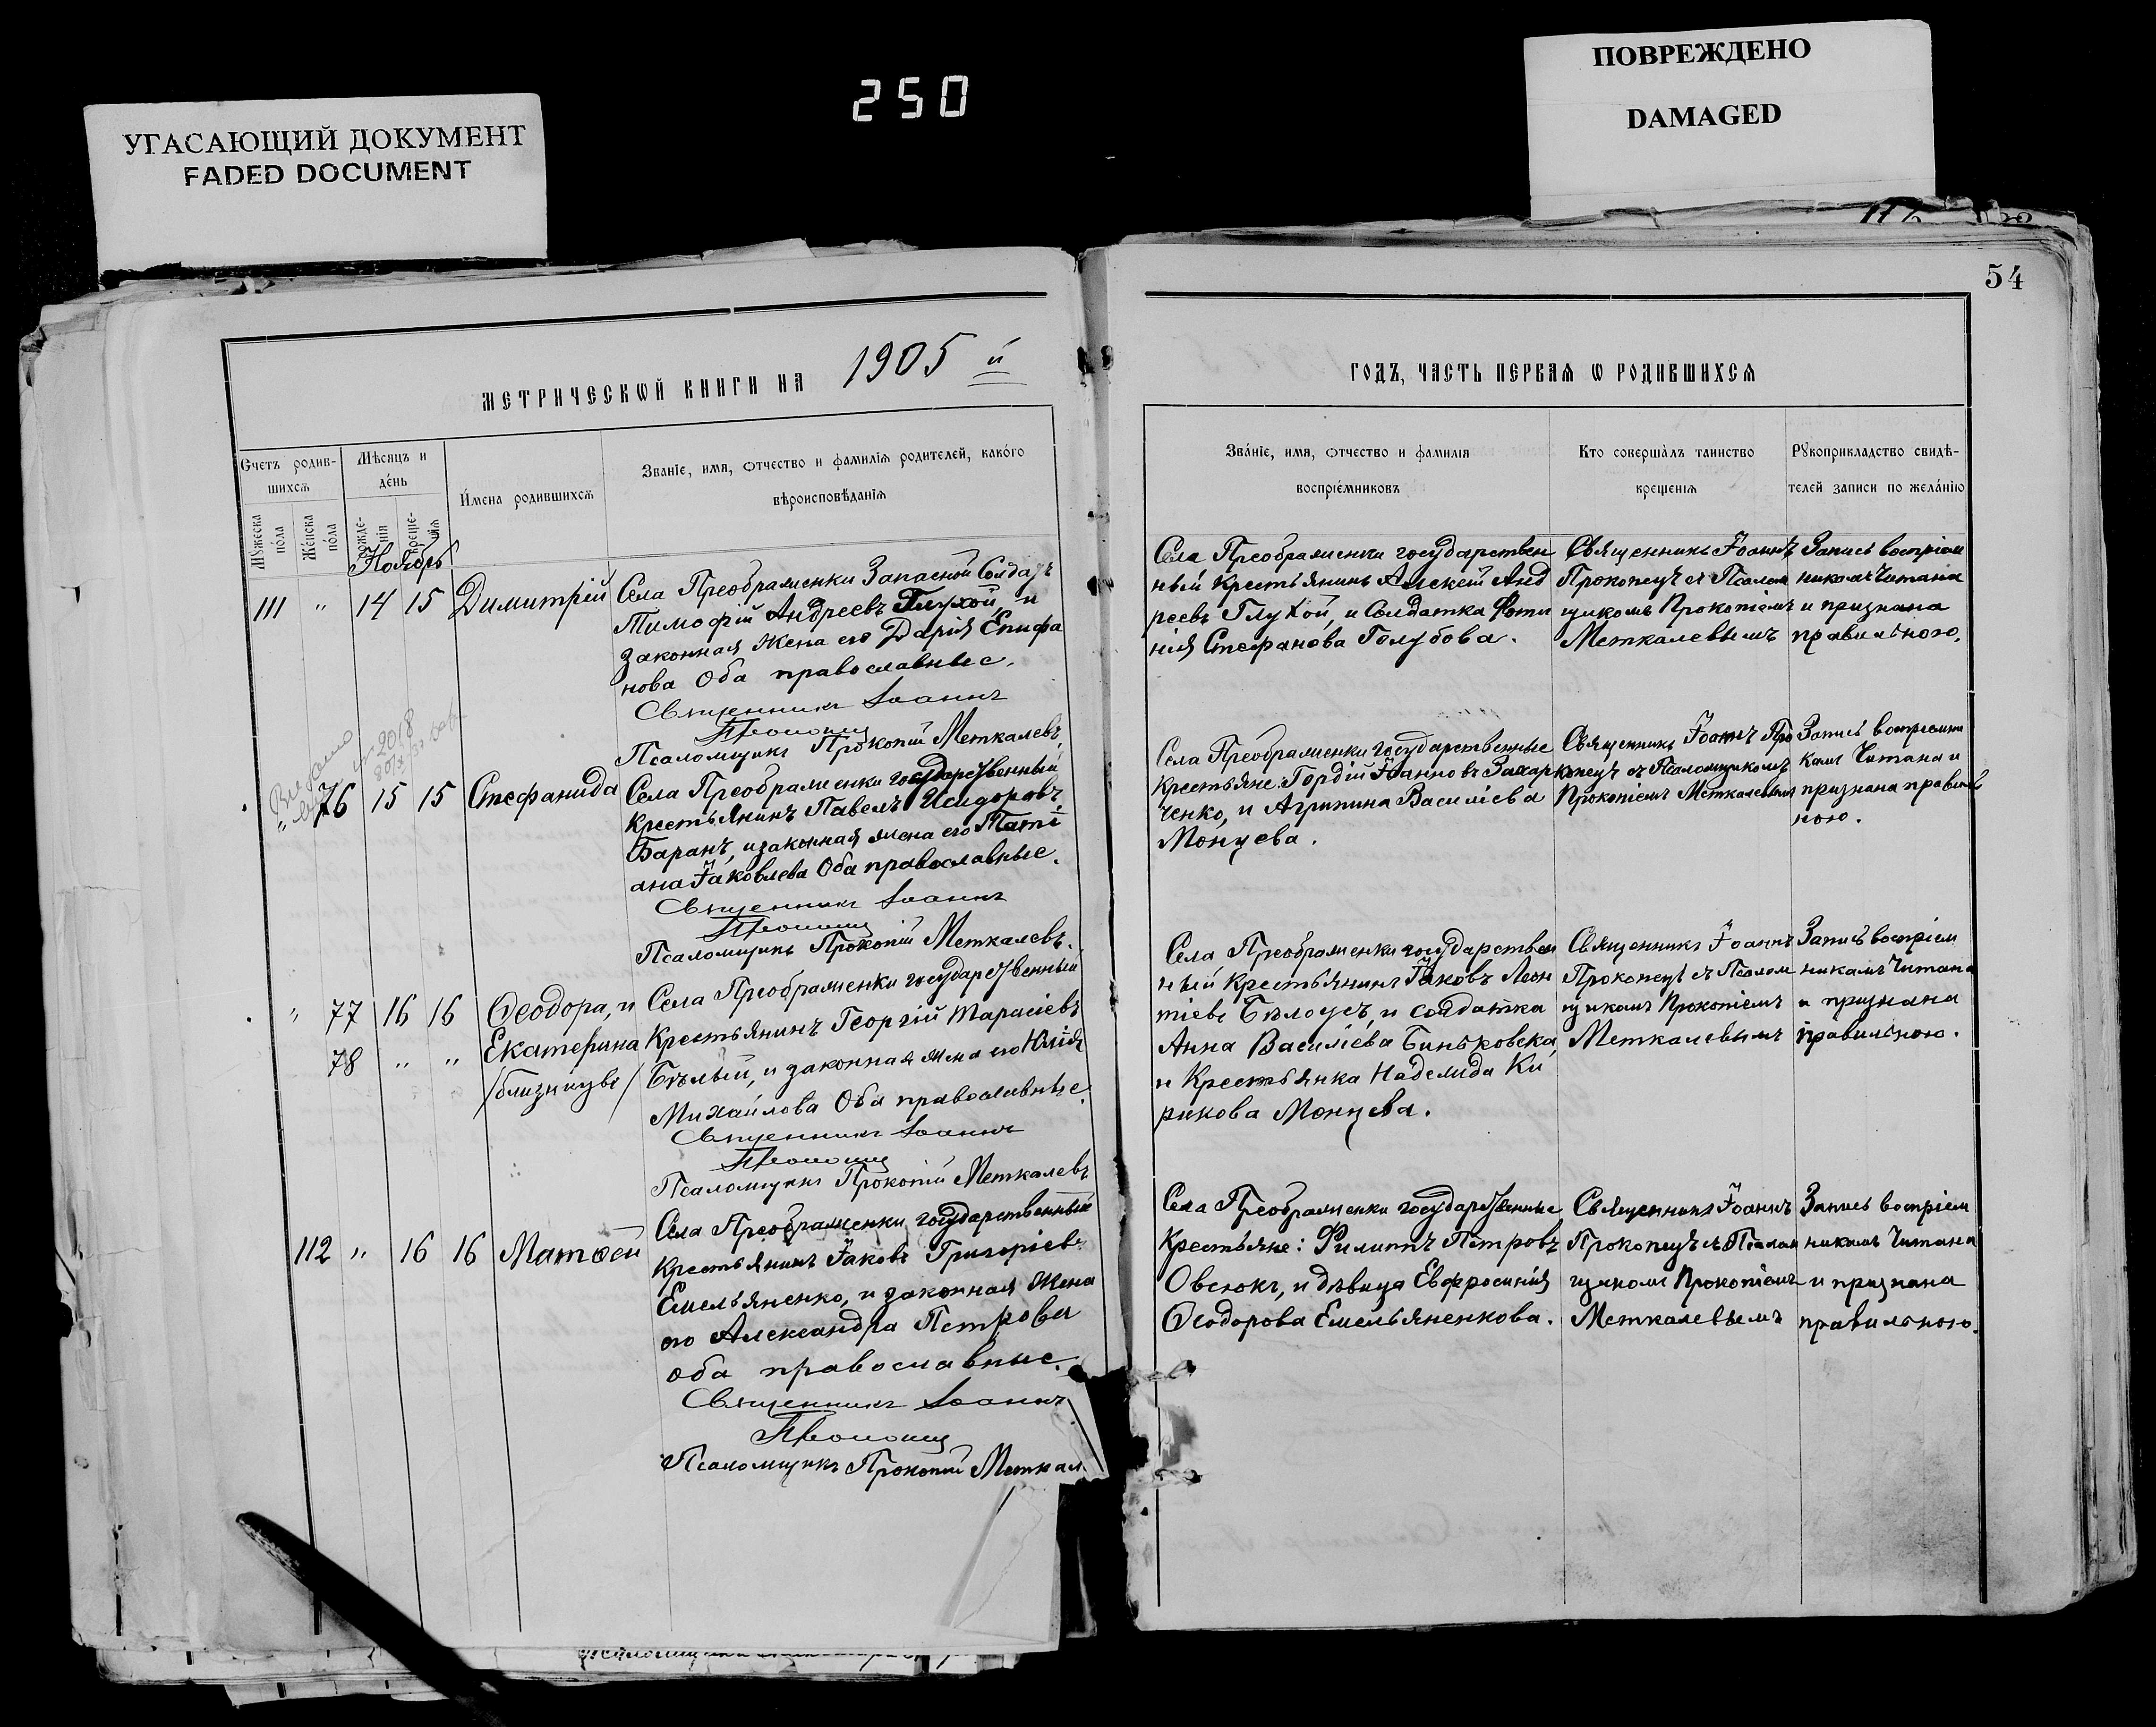 УГАСАЮЩИЙ ДОКУМЕНТ
FADED DOCUMENT
250
ПОВРЕЖДЕНО
DAMAGED
54
МЕТРИЧЕСКѠЙ КНИГИ НА 1905 й
ГОДЪ, ЧАСТЬ ПЕРВАЯ Ѡ РОДИВШИХСЯ
Счетъ родив-
шихся
Мѣсяцъ и
де́нь
И́мена родившихся
Званіе, имя, ѻтчество и фамилія родителей, како́го
вѣроисповѣданія
Мꙋжеска по́ла
Же́нска по́ла
рожде-нія
креще-нія
Ноябрь
Зва́ніе, имя, ѻтчество и фамилія
воспріе́мниковъ
Кто соверша̀лъ таинство
крещенія
Рꙋкоприкладство свидѣ-
телей записи по жела́нію
111 " 14 15 Димитрій
Села Преображенки Запасной Солдатъ
Тимофій Андреевъ Глухой, и
Законная Жена его Дарія Епифа
нова Оба православные.
Священникъ Іоаннъ
Прокопец
Псаломщикъ Прокопій Меткалевъ.
Села Преображенки государствен
ный Крестьянинъ Алексѣй Анд
реевъ Глухой, и Солдатка Фоти
нія Стефанова Голубова.
Священникъ Іоаннъ
Прокопецъ съ Псалом
щикомъ Прокопіемъ
Меткалевымъ
Запись воспріем
никамъ Читана
и признана
правильною.
" 76 15 15 Стефанида
Села Преображенки государственный
Крестьянинъ Павелъ Исидоровъ
Баранъ, и законная жена его Таті
ана Іаковлева Оба православные.
Священникъ Іоаннъ
Прокопец
Псаломщикъ Прокопій Меткалевъ.
Села Преображенки государственные
Крестьяне: Гордій Іоанновъ Захар
ченко, и Агрипина Василіева
Монцева.
Священникъ Іоаннъ Про
копецъ съ Псаломщикомъ
Прокопіемъ Меткалевымъ
Запись воспріемни
камъ Читана и
признана правиль
ною.
" 77 16 16 Ѳеодора, и
78 " " Екатерина
/близнецы/
Села Преображенки государственный
Крестьянинъ Георгій Тарасіевъ
Бѣлый, и законная жена его Юлія
Михайлова Оба православные.
Священникъ Іоаннъ
Прокопец
Псаломщикъ Прокопій Меткалевъ
Села Преображенки государствен
ный Крестьянинъ Іаковъ Леон
тіевъ Бѣлоусъ, и солдатка
Анна Василіева Биньковска,
и Крестьянка Надежда Ки
рикова Монцева.
Священникъ Іоаннъ
Прокопецъ съ Псалом
щикомъ Прокопіемъ
Меткалевымъ
Запись воспріем
никамъ Читана
и признана
правильною.
112 " 16 16 Матѳей
Села Преображенки государственный
Крестьянинъ Іаковъ Григоріевъ
Емельяненко, и законная Жена
его Александра Петрова
оба православные.
Священникъ Іоаннъ
Прокопец
Псаломщикъ Прокопій Меткал
Села Преображенки государственные
Крестьяне: Филиппъ Петровъ
Овсюкъ, и дѣвица Евфросинія
Ѳеодорова Емельяненкова.
Священникъ Іоаннъ
Прокопецъ съ Псалом
щикомъ Прокопіемъ
Меткалевымъ
Запись воспріем
никамъ Читана
и признана
правильною.